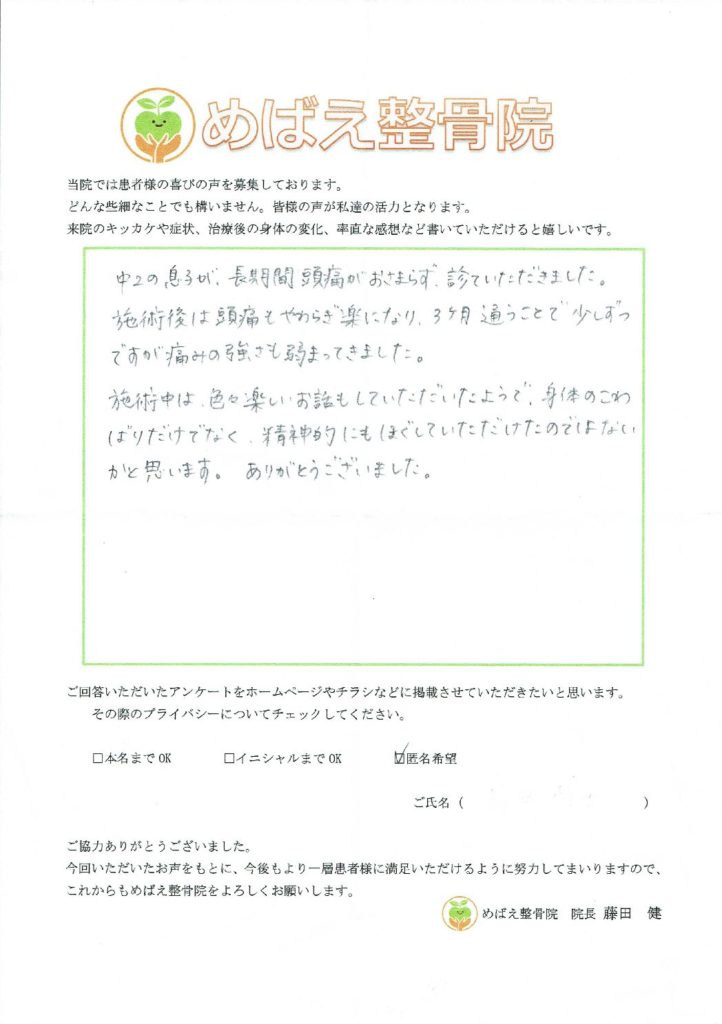 めばえ整骨院
当院では患者様の喜びの声を募集しております。
どんな些細なことでも構いません。皆様の声が私達の活力となります。
来院のキッカケや症状、治療後の身体の変化、率直な感想など書いていただけると嬉しいです。
中2の息子が、長期間頭痛がおさまらず、診ていただきました。
施術後は頭痛もやわらぎ楽になり、3ヶ月通うことで少しずつ
ですが痛みの強さも弱まってきました。
施術中は、色々楽しいお話もしていただいたようで、身体のこわ
ばりだけでなく、精神的にもほぐしていただけたのではない
かと思います。 ありがとうございました。
ご回答いただいたアンケートをホームページやチラシなどに掲載させていただきたいと思います。
その際のプライバシーについてチェックしてください。
□本名まで OK □イニシャルまで OK ☑匿名希望
ご氏名（ ）
ご協力ありがとうございました。
今回いただいたお声をもとに、今後もより一層患者様に満足いただけるように努力してまいりますので、
これからもめばえ整骨院をよろしくお願いします。
めばえ整骨院 院長 藤田 健